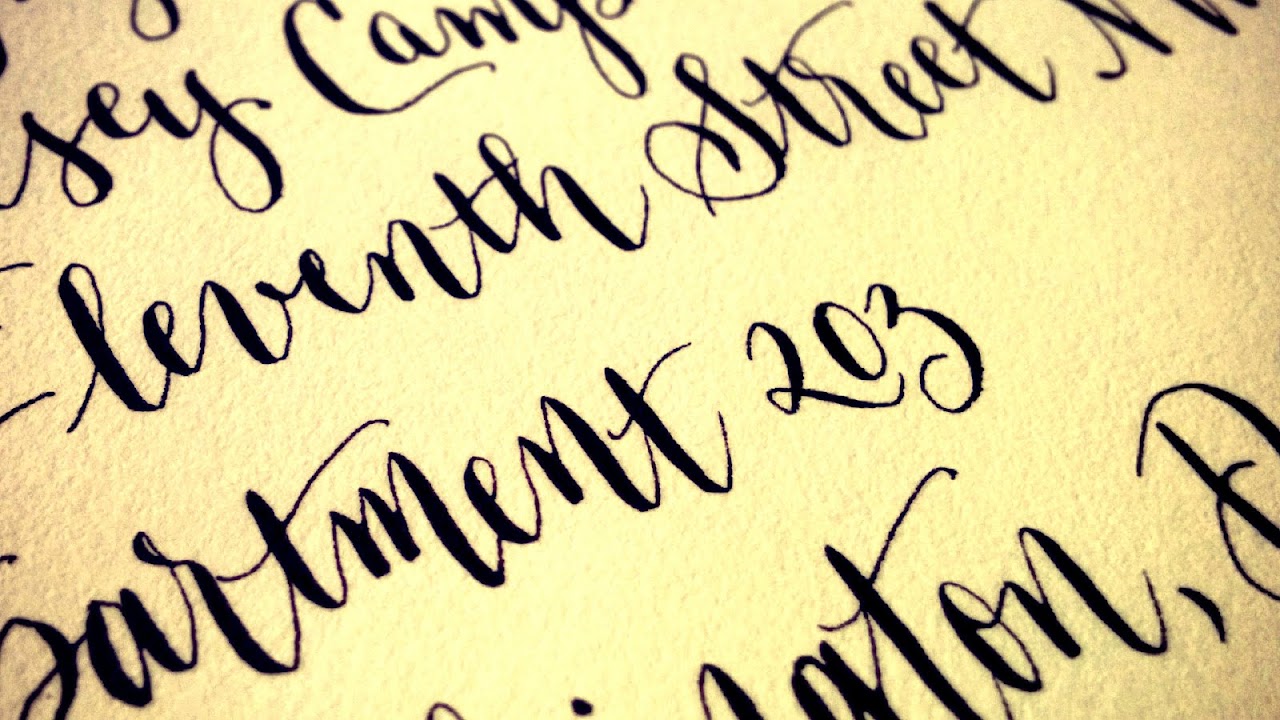 sey Camp
Eleventh Street NW
partment 203
ington, D